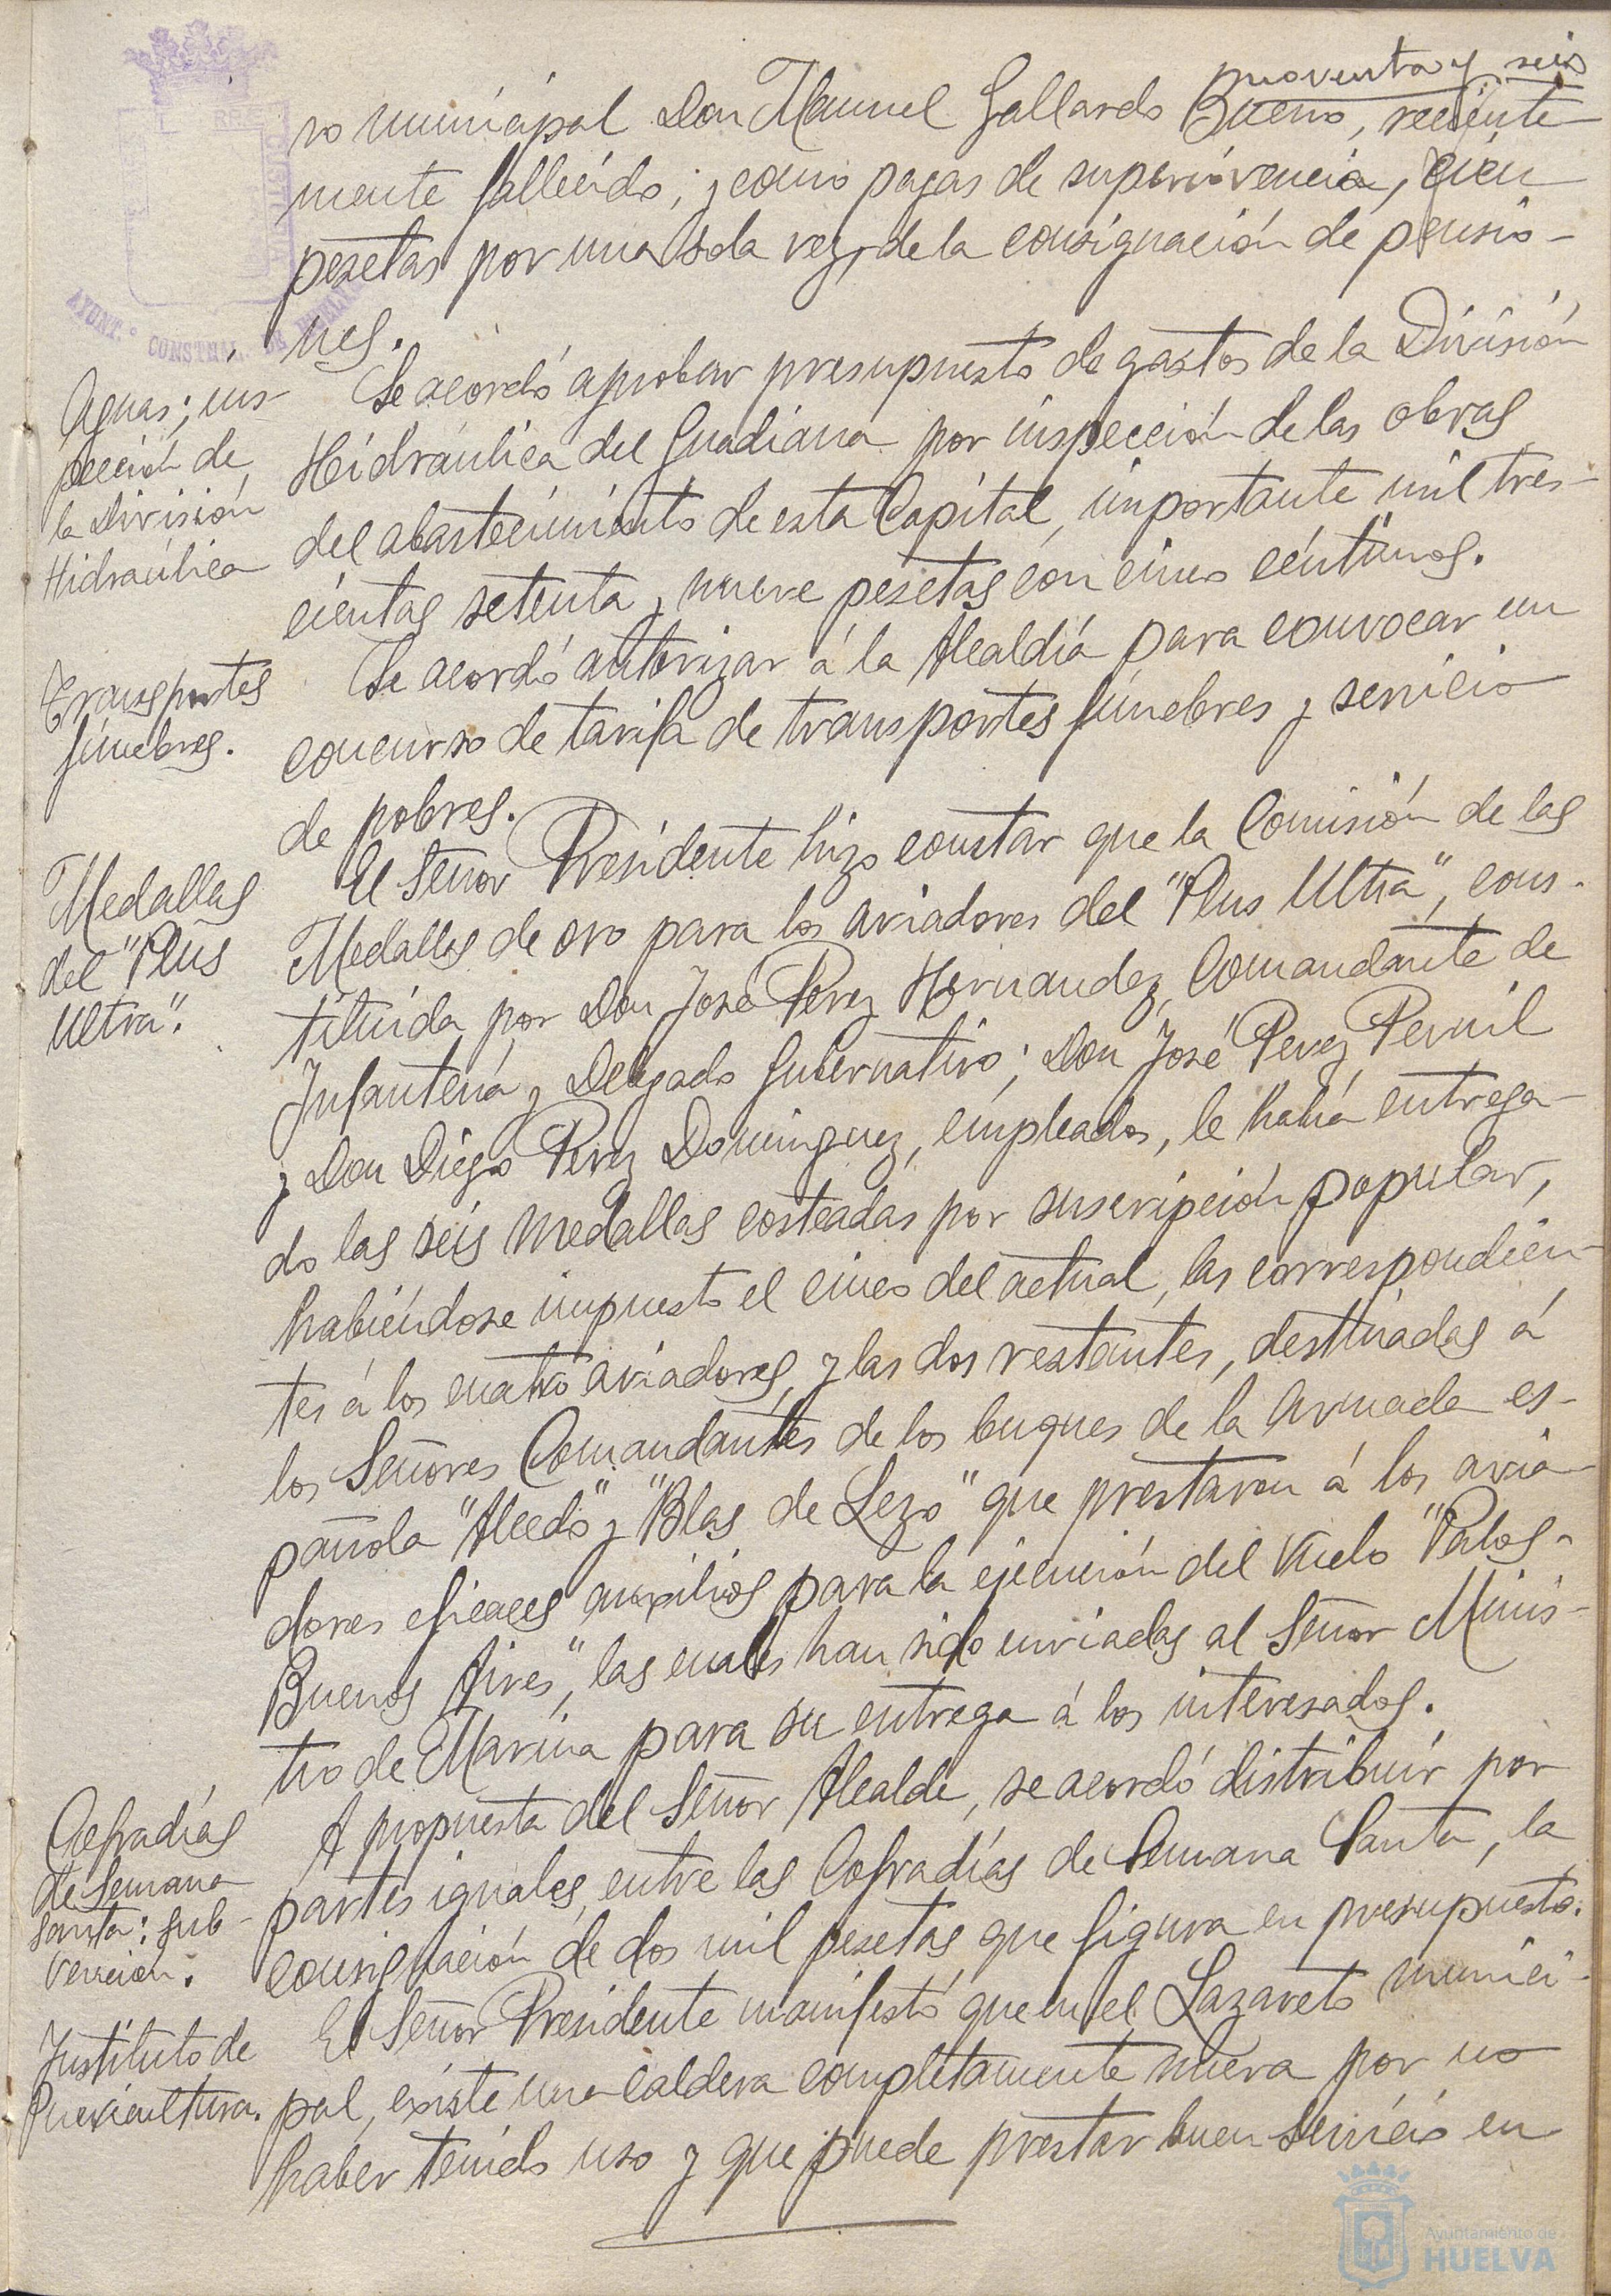 noventa y seis
ro municipal Don Manuel Gallardo Bueno, reciente
mente fallecido; y como pagas de supervivencia, cien
pesetas por una sola vez, de la consignación de pensio-
nes.
AYUNT.º CONSTNAL. DE HUELVA
Aguas; ins-
pección de
la División
Hidraúlica
Se acordó aprobar presupuesto de gastos de la División
Hidraúlica del Guadiana por inspección de las obras
del abastecimiento de esta Capital, importante mil tres-
cientas setenta y nueve pesetas con cinco céntimos.
Transportes
fúnebres.
Se acordó autorizar á la Alcaldía para convocar un
concurso de tarifa de transportes fúnebres y servicio
de pobres.
Medallas
del "Plus
Ultra".
El Señor Presidente hizo constar que la Comisión de las
Medallas de oro para los aviadores del "Plus Ultra", cons-
tituida por Don José Perez Hernandez, Comandante de
Infantería y Delegado Gubernativo; Don José Perez Pernil
y Don Diego Perez Dominguez, empleados, le había entrega-
do las seis medallas costeadas por suscripción popular,
habiéndose impuesto el cinco del actual, las correspondien-
tes á los cuatro aviadores, y las dos restantes, destinadas á
los Señores Comandantes de los buques de la Armada es-
pañola "Alcedo" y "Blas de Lezo" que prestaron á los avia-
dores eficaces auxilios para la ejecución del vuelo "Palos-
Buenos Aires", las cuales han sido enviadas al Señor Minis-
tro de Marina para su entrega á los interesados.
Cofradías
de Semana
Santa: sub-
vención.
A propuesta del Señor Alcalde, se acordó distribuir por
partes iguales, entre las Cofradías de Semana Santa, la
consignación de dos mil pesetas que figura en presupuesto.
Instituto de
Puericultura.
El Señor Presidente manifestó que en el Lazareto munici-
pal, existe una caldera completamente nueva por no
haber tenido uso y que puede prestar buen servicio en
Ayuntamiento de
HUELVA